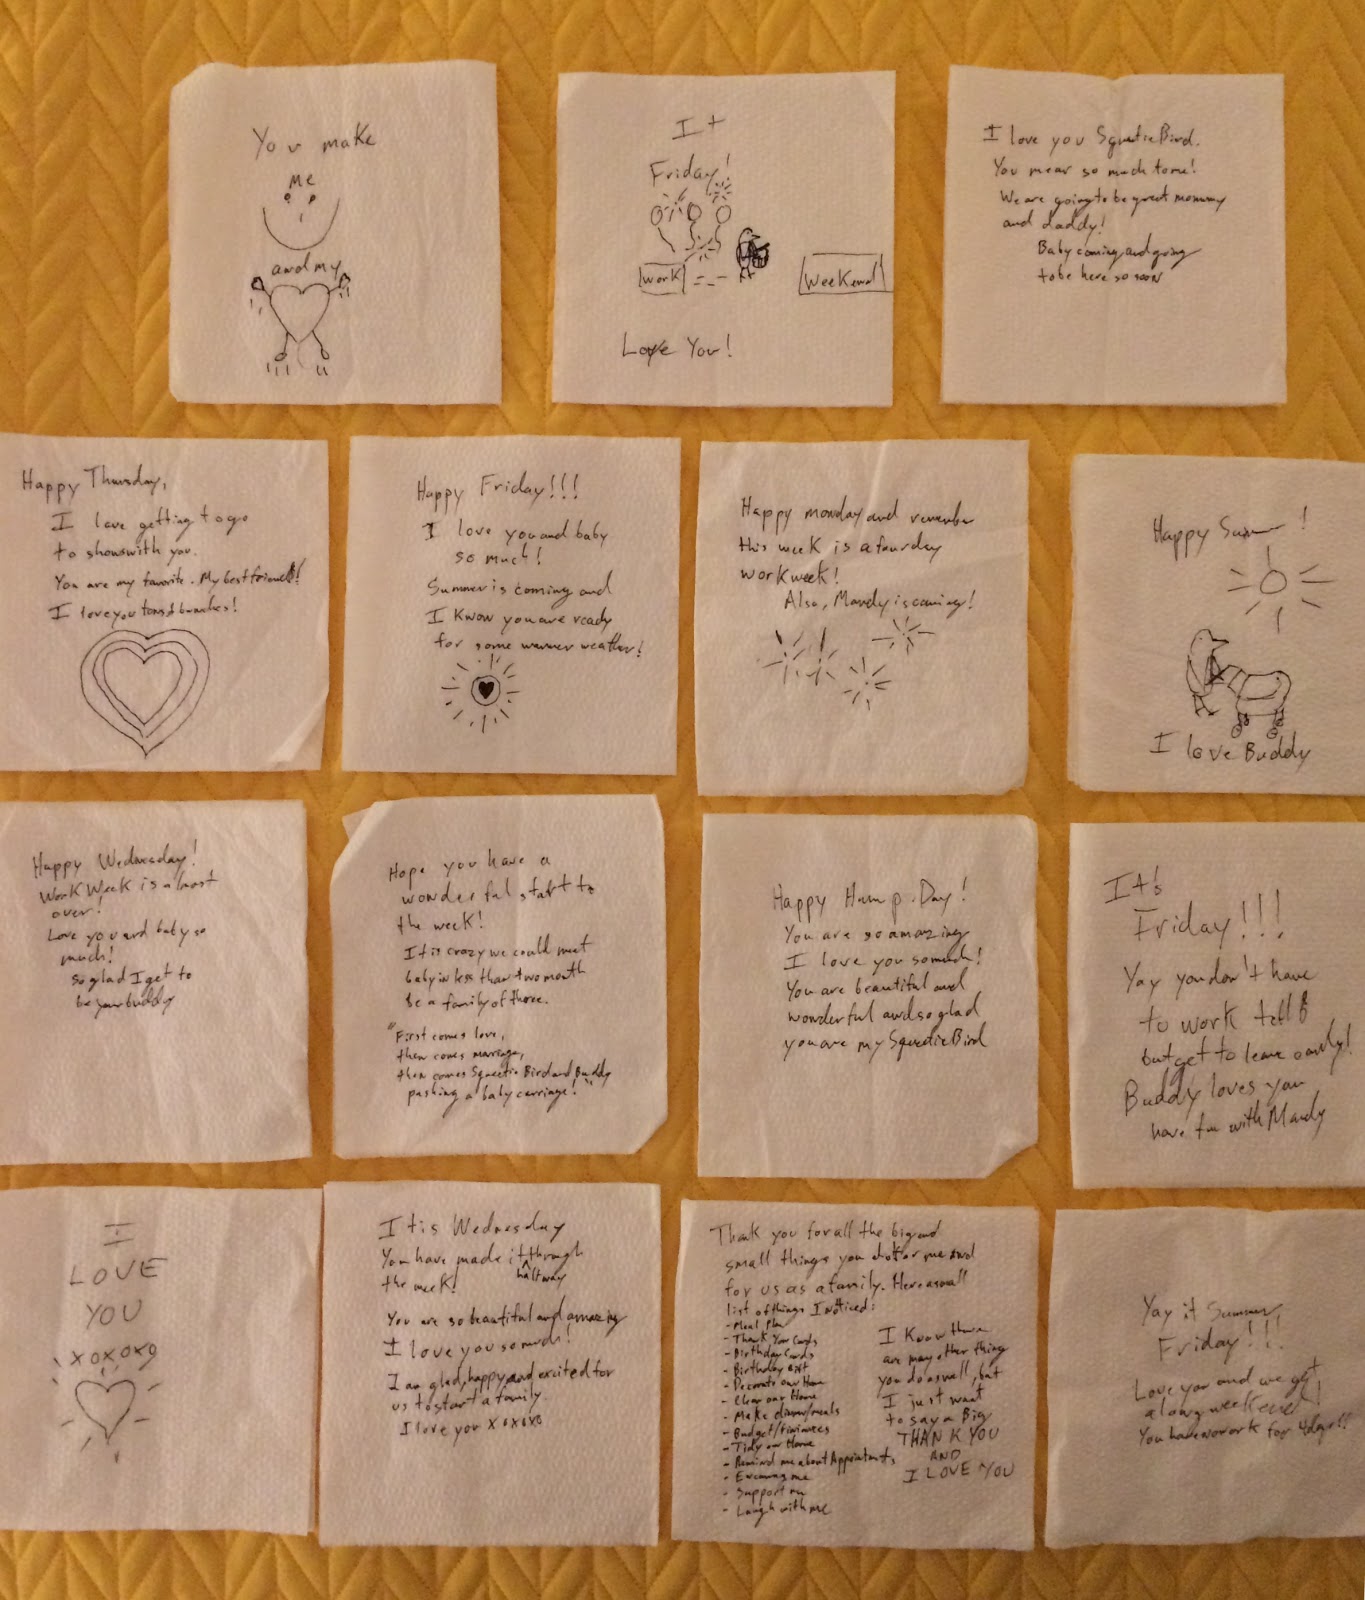 You make
me
and my
It
Friday!
work
Weekend
Love You!
I love you SqueetieBird.
You mean so much to me!
We are going to be great mommy
and daddy!
Baby coming and going
to be here so soon
Happy Thursday,
I love getting to go
to shows with you.
You are my favorite. My best friend!
I love you tons & bunches!
Happy Friday!!!
I love you and baby
so much!
Summer is coming and
I know you are ready
for some warmer weather!
Happy monday and remember
this week is a four day
work week!
Also, Mandy is coming!
Happy
I love Buddy
Happy Wednesday!
Work Week is almost
over!
Love you and baby so
much!
so glad I get to
be your buddy
Hope you have a
wonderful start to
the week!
It is crazy we could meet
baby in less than two month
be a family of three.
"First comes love,
then comes marriage,
then comes Squeetie Bird and Buddy
pushing a baby carriage!"
Happy Hump Day!
You are so amazing
I love you so much!
You are beautiful and
wonderful and so glad
you are my SqueetieBird
It's
Friday!!!
Yay you don't have
to work
but get to leave early!
Buddy loves you
have fun with Mandy
I
LOVE
YOU
xoxoxo
It is Wednesday
You have made it halfway through
the week!
You are so beautiful and amazing
I love you so much!
I am glad, happy, and excited for
us to start a family.
I love you xoxoxo
Thank you for all the big and
small things you do for me and
for us as a family. Here a small
list of things I noticed:
- Meal Plan
- Thank You Cards
- Birthday Cards
- Birthday Gift
- Decorate our Home
- Clean our Home
- Make dinner/meals
- Budget/finances
- Tidy our Home
- Remind me about Appointments
- me
- Support me
- Laugh with me
I know there
are many other thing
you do as well, but
I just want
to say a Big
THANK YOU
AND
I LOVE YOU
Yay it Summer
Friday!!!
Love you and we get
a long weekend!
You have no work for 4 days!!